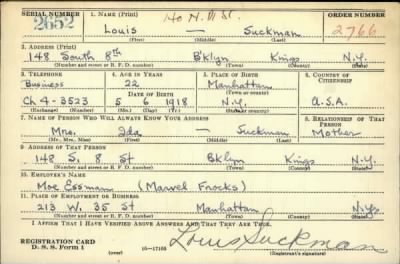 SERIAL NUMBER 1. NAME (Print) ORDER NUMBER
2652 Louis — Suckman 2766
(First) (Middle) (Last)
2. ADDRESS (Print)
148 South 8th B'klyn Kings N.Y.
(Number and street or R. F. D. number) (Town) (County) (State)
3. TELEPHONE 4. AGE IN YEARS 5. PLACE OF BIRTH 6. COUNTRY OF CITIZENSHIP
Business 22 Manhattan
DATE OF BIRTH (Town or county)
Ch 4-3523 5 6 1918 N.Y. U.S.A.
(Exchange) (Number) (Mo.) (Day) (Yr.) (State or country)
7. NAME OF PERSON WHO WILL ALWAYS KNOW YOUR ADDRESS 8. RELATIONSHIP OF THAT PERSON
Mrs. Ida — Suckman Mother
(Mr., Mrs., Miss) (First) (Middle) (Last)
9. ADDRESS OF THAT PERSON
148 S. 8 St Bklyn Kings N.Y.
(Number and street or R. F. D. number) (Town) (County) (State)
10. EMPLOYER'S NAME
Moe Essman (Marvel Frocks)
11. PLACE OF EMPLOYMENT OR BUSINESS
213 W. 35 St Manhattan N.Y.
(Number and street or R. F. D. number) (Town) (County) (State)
I AFFIRM THAT I HAVE VERIFIED ABOVE ANSWERS AND THAT THEY ARE TRUE.
REGISTRATION CARD
D. S. S. Form 1 (over) 16—17105 Louis Suckman
(Registrant's signature)